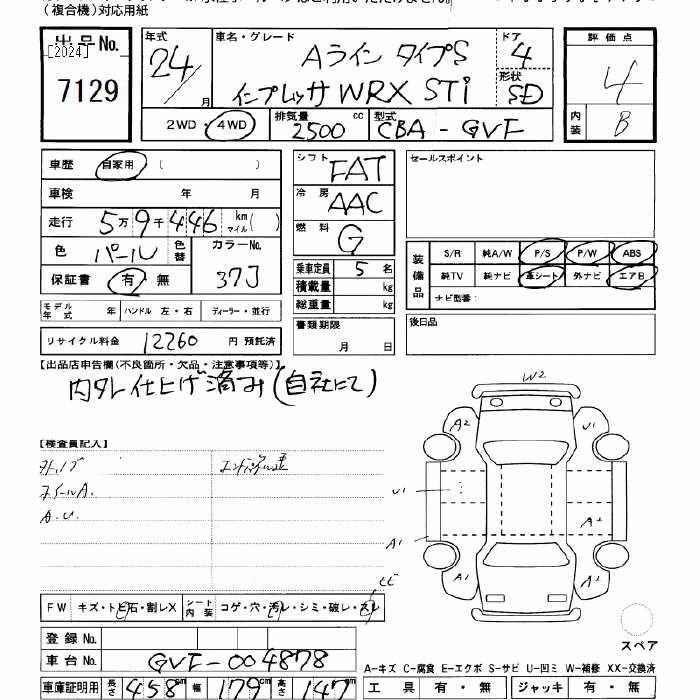 (複合機)対応用紙
出品No.
[2024]
7129
年式 24 月
車名・グレード Aライン タイプS
インプレッサ WRX STi
ドア 4
形状 SD
評価点 4
内装 B
2WD・4WD
排気量 2500 cc
型式 CBA-GVF
車歴 自家用 ( )
車検 年 月
走行 5万9千446 km マイル ( )
色 パール 色替 カラーNo. 37J
保証書 有・無
モデル年式 年 ハンドル 左・右 ディーラー・並行
リサイクル料金 12260 円 預託済
シフト FAT
冷房 AAC
燃料 G
乗車定員 5 名
積載量 kg
総重量 kg
書類期限 月 日
セールスポイント
装備品 S/R 純A/W P/S P/W ABS
純TV 純ナビ 革シート 外ナビ エアB
ナビ型番:
後日品
【出品店申告欄(不良箇所・欠品・注意事項等)】
内外仕上げ済み(自社にて)
【検査員記入】
ホイールA.
A.U.
W2
A2 U1
U1
A2
A1
A1 A2
FW キズ・トビ石・割レX シート内装 コゲ・穴・汚レ・シミ・破レ・スレ
登録No.
車台No. GVF-004878
車庫証明用 長さ 458 cm 幅 179 cm 高さ 147 cm
スペア
A-キズ C-腐食 E-エクボ S-サビ U-凹ミ W-補修 XX-交換済
工具 有・無 ジャッキ 有・無